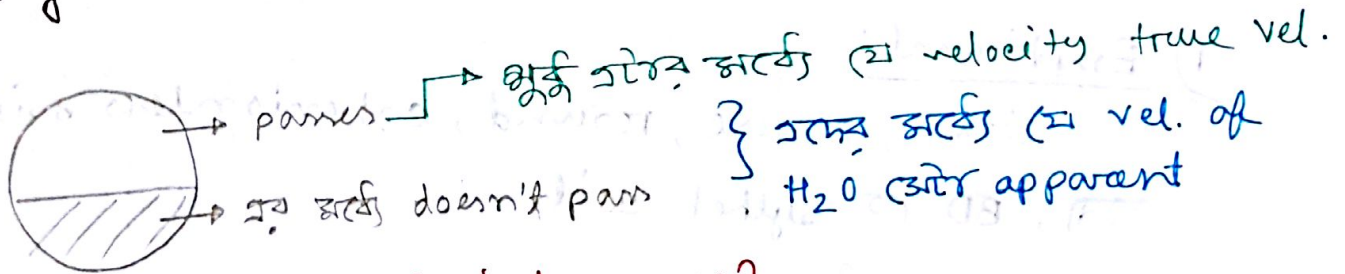 passes → শুধু এটার মধ্যে যে velocity true vel.
এর মধ্যে doesn't pass
} এদের মধ্যে যে vel. of
H₂O সেটা apparent